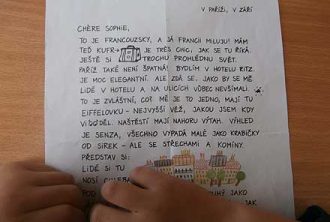 V PAŘÍŽI, V ZÁŘÍ
CHÈRE SOPHIE,
TO JE FRANCOUZSKY, A JÁ FRANCII MILUJU! MÁM
TEĎ KUFR JE TRÈS CHIC, JAK SE TU ŘÍKÁ.
JEŠTĚ SI TROCHU PROHLÉDNU SVĚT.
PAŘÍŽ TAKÉ NENÍ ŠPATNÁ! BYDLÍM V HOTELU RITZ
JE MOC ELEGANTNÍ. ALE ZDÁ SE, JAKO BY SE MĚ
LIDÉ V HOTELU A NA ULICÍCH VŮBEC NEVŠÍMALI.
TO JE ZVLÁŠTNÍ, COŽ MĚ JE TO JEDNO, MAJÍ TU
EIFFELOVKU - NEJVYŠŠÍ VĚŽ, JAKOU JSEM KDY
VIDĚL. NAŠTĚSTÍ MAJÍ NAHORU VÝTAH. VÝHLED
JE SENZA, VŠECHNO VYPADÁ MALÉ JAKO KRABIČKY
OD SIREK - ALE SE STŘECHAMI A KOMÍNY.
PŘEDSTAV SI:
LIDÉ SI TU
NOSÍ
POD JAKO
JAK